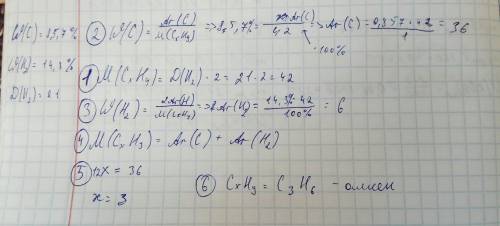 W(C) = 85,7%
W(H₂) = 14,3%
D(H₂) = 21
② W(C) = Ar(C) / M(CₓHᵧ) => 85,7% = x·Ar(C) / 42 · 100% => Ar(C) = 0,857·42 / 1 = 36
① M(CₓHᵧ) = D(H₂) · 2 = 21 · 2 = 42
③ W(H₂) = 2Ar(H) / M(CₓHᵧ) => 2Ar(H₂) = 14,3%·42 / 100% = 6
④ M(CₓHᵧ) = Ar(C) + Ar(H₂)
⑤ 12x = 36
x = 3
⑥ CₓHᵧ = C₃H₆ - алкен